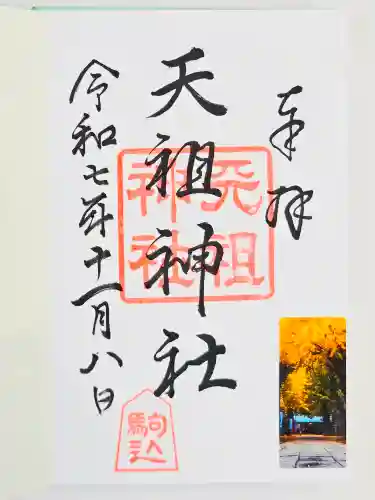 奉拝
天祖神社
天祖神社
駒込
令和七年十一月八日